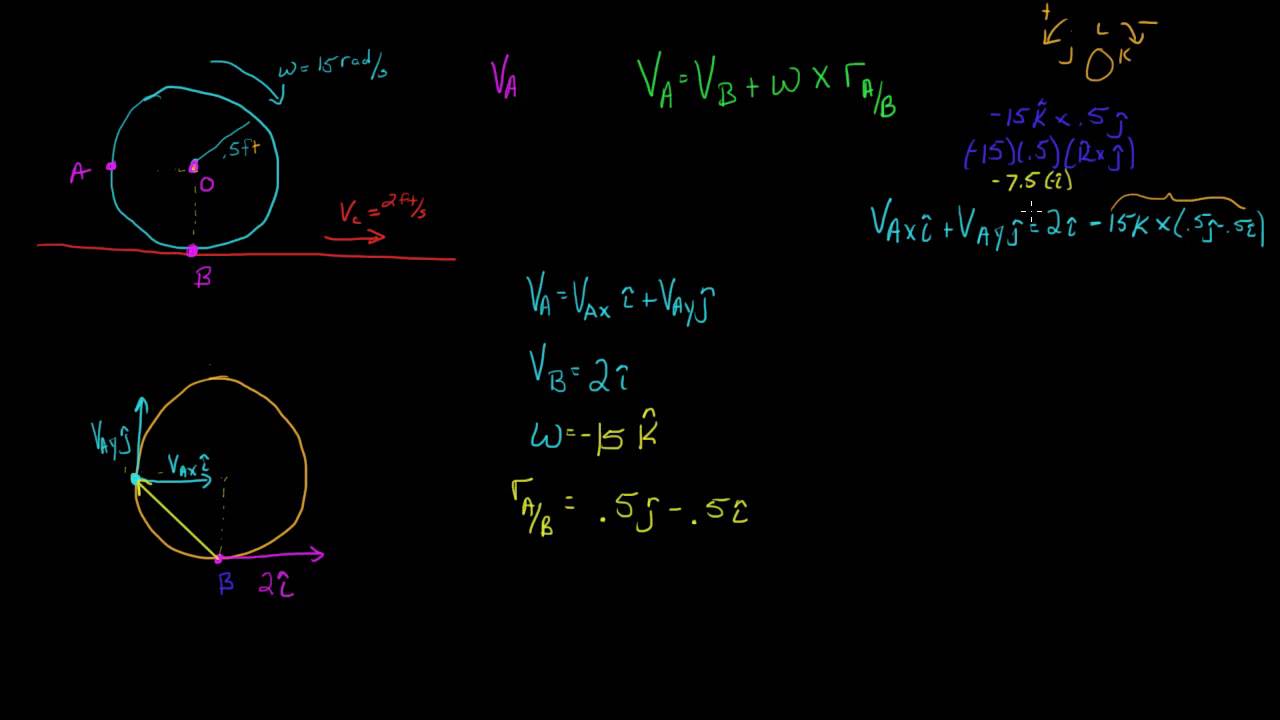 ω = 15 rad/s
.5ft
A
O
V_c = 2ft/s
B
V_A
V_A = V_B + ω × r_A/B
+
-
i
j
k
-15k̂ × .5ĵ
(-15)(.5)(k̂ × ĵ)
-7.5(-î)
V_Ax î + V_Ay ĵ = 2î - 15k × (.5ĵ - .5î)
V_A = V_Ax î + V_Ay ĵ
V_B = 2î
ω = -15 k̂
r_A/B = .5ĵ - .5î
V_Ay ĵ
V_Ax î
B
2î